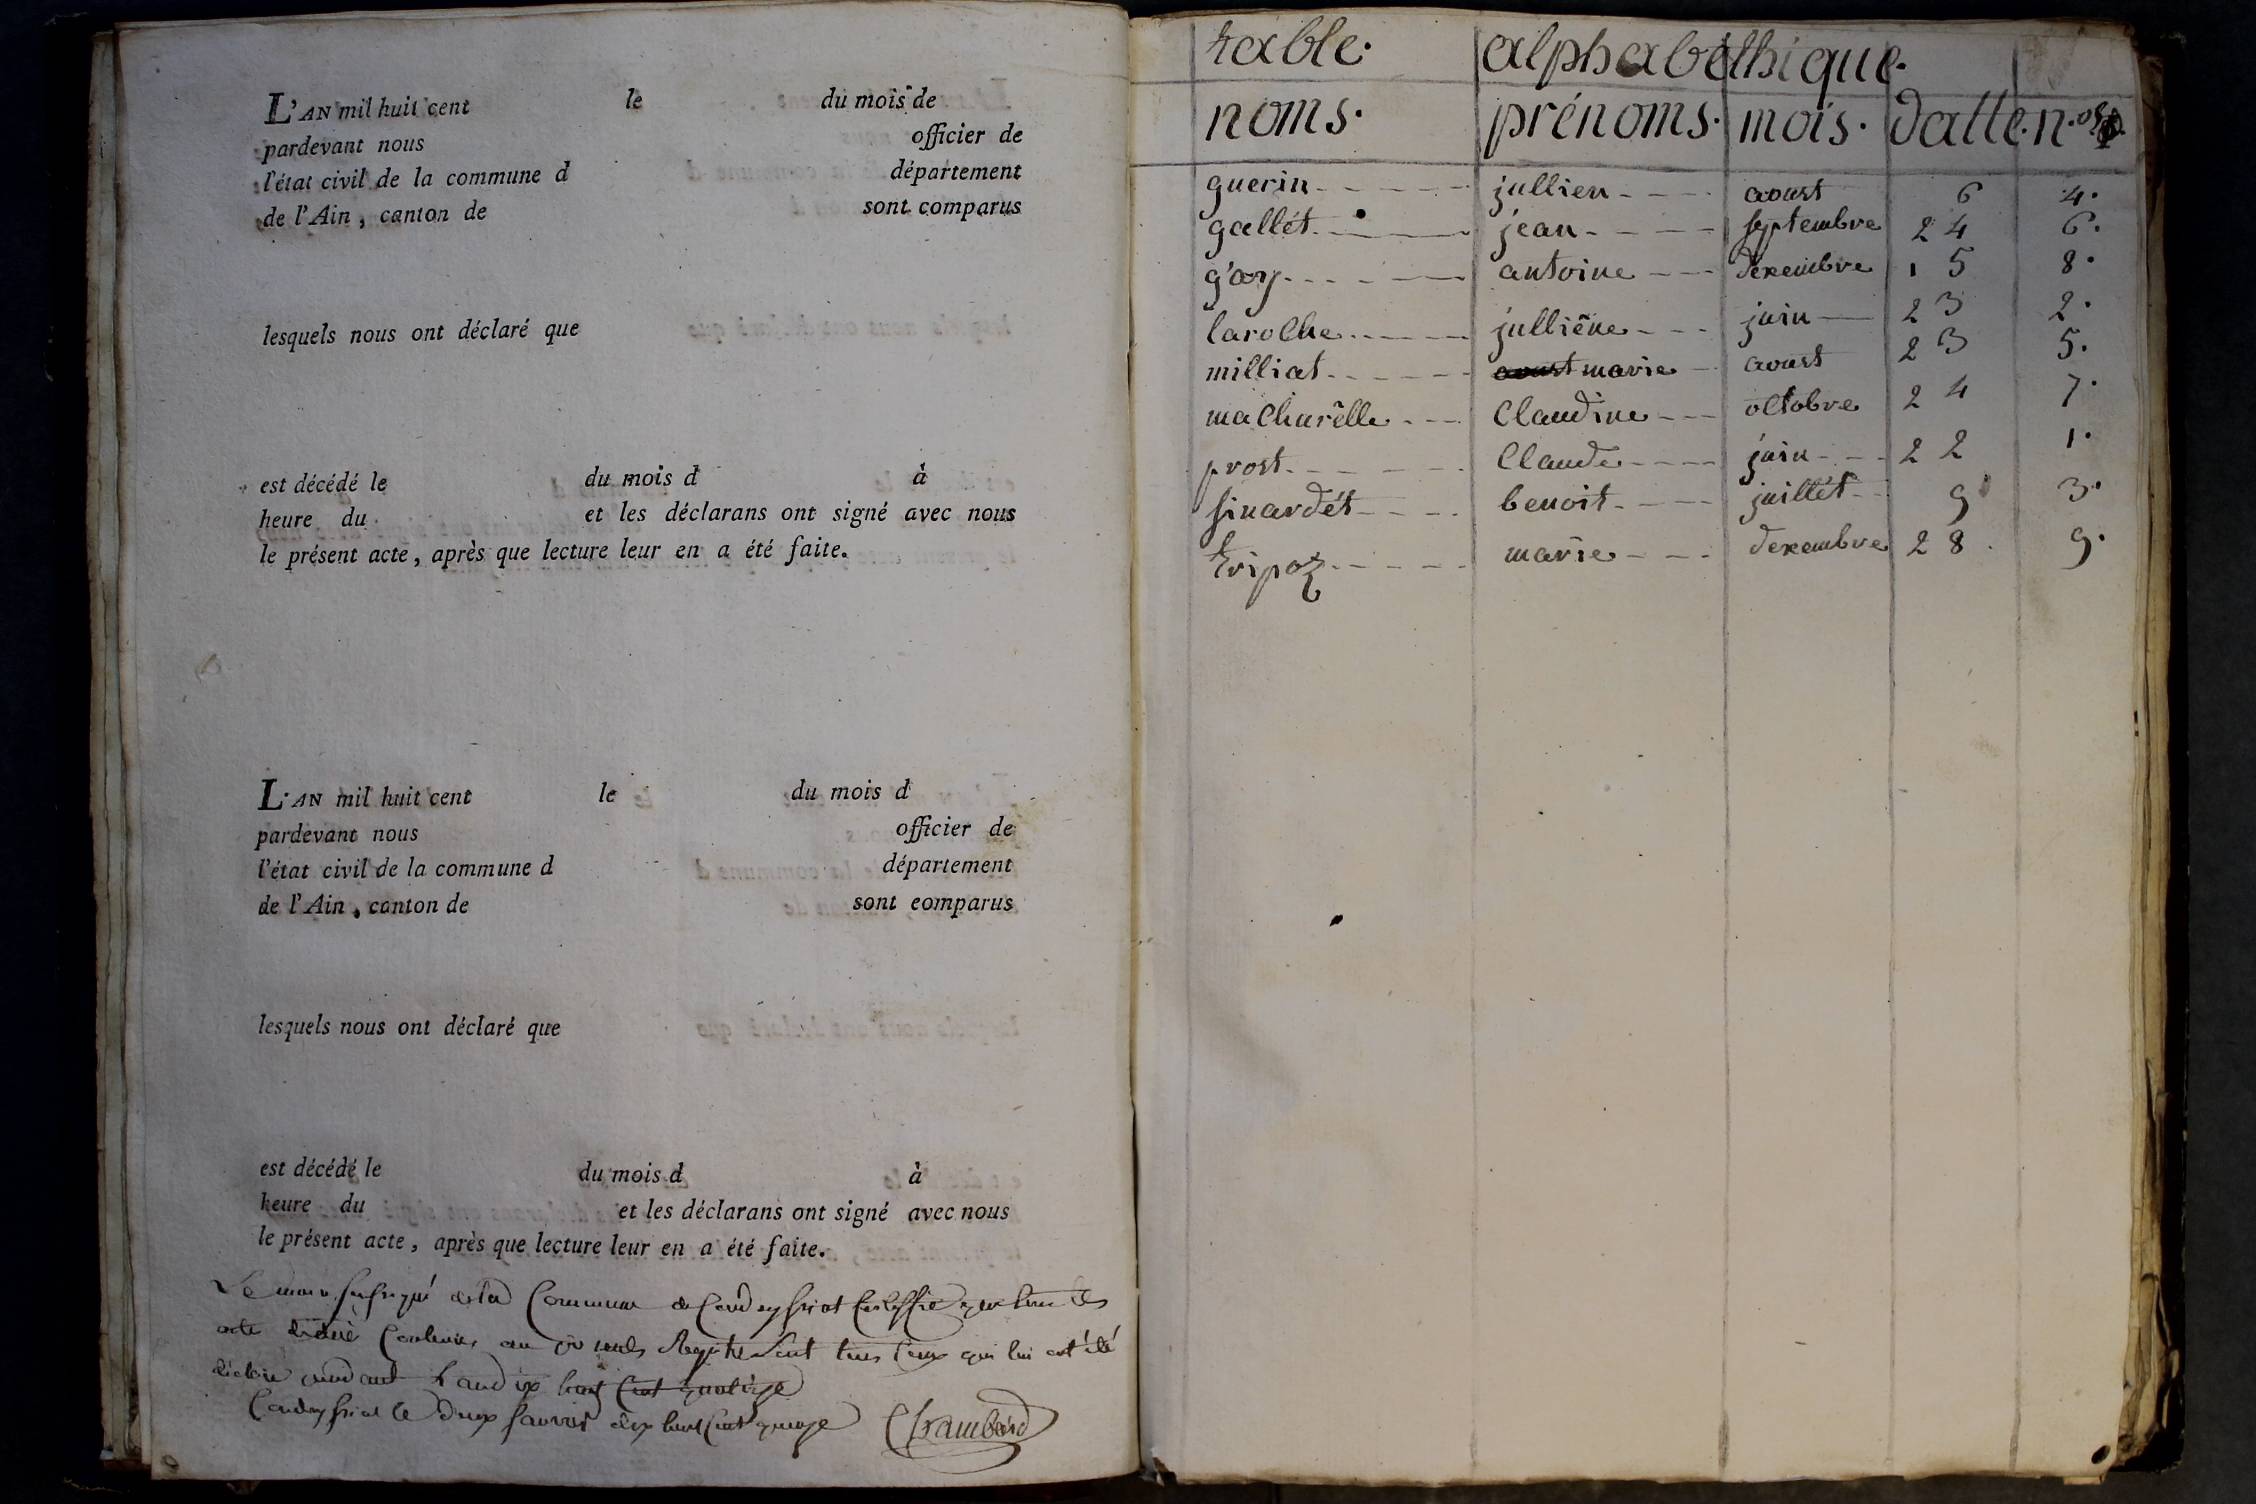 L'AN mil huit cent le du mois de
pardevant nous officier de
l'état civil de la commune d département
de l'Ain, canton de sont comparus
lesquels nous ont déclaré que
est décédé le du mois d à
heure du et les déclarans ont signé avec nous
le présent acte, après que lecture leur en a été faite.
L'AN mil huit cent le du mois d
pardevant nous officier de
l'état civil de la commune d département
de l'Ain, canton de sont comparus
lesquels nous ont déclaré que
est décédé le du mois d à
heure du et les déclarans ont signé avec nous
le présent acte, après que lecture leur en a été faite.
Le maire de la Commune de Condeyssiat que tous les
acte au Registre sont tous ceux qui lui ont été
déclaré pendant l'an dix huit cent quatorze
Condeyssiat le deux janvier dix huit cent quinze Chambard
table. alphabéthique.
noms. prénoms. mois. datte. n.os
guerin jullien aoust 6 4.
gallét jean septembre 24 6.
g'oy antoine dexembre 15 8.
laroche julliéne juin 23 2.
milliat aoust marie aoust 23 5.
machurêlle Claudine octobre 24 7.
prost Claude juin 22 1.
sinardét benoit juillét 9 3.
tripoz marie dexembre 28 9.